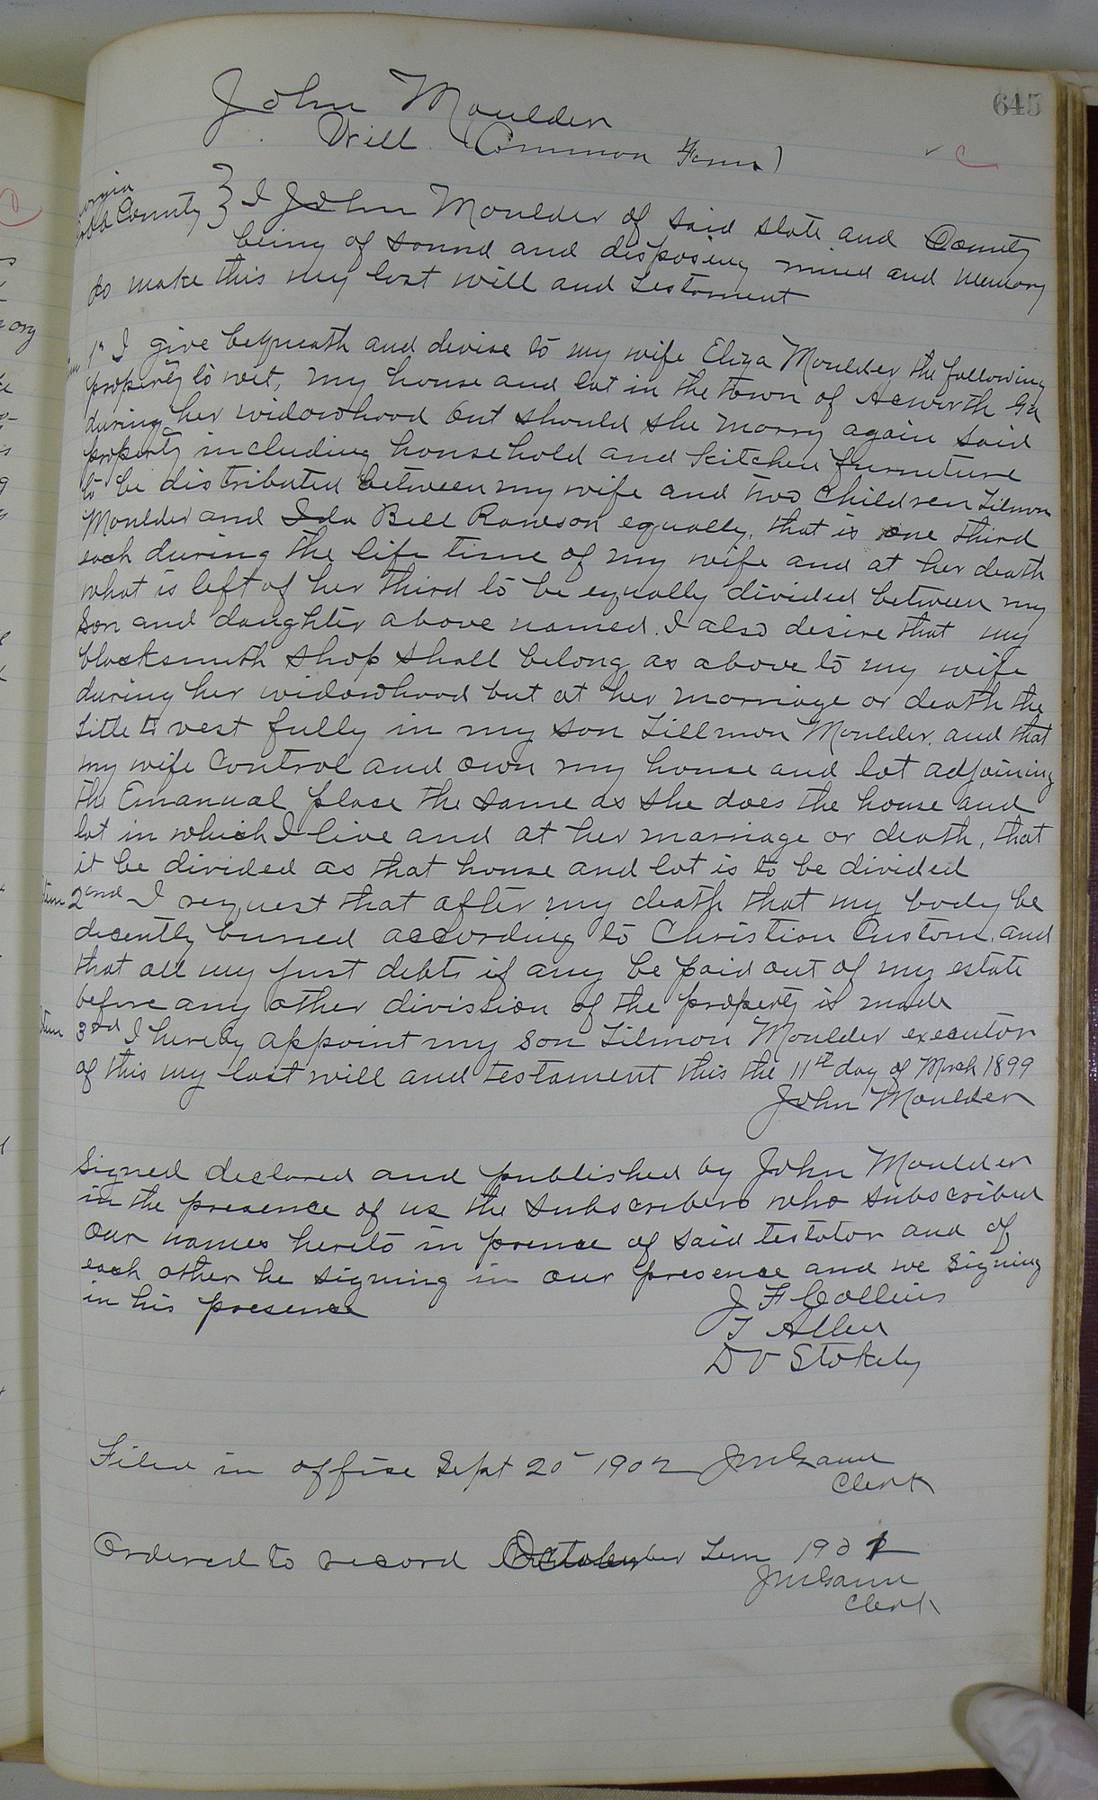 645
John Moulder
Will (Common Form)
Georgia
Cobb County } I John Moulder of said state and County
being of sound and disposing mind and memory
do make this my last will and Testament
Item 1st I give bequeath and devise to my wife Eliza Moulder the following
property to wit, my house and lot in the town of Acworth Ga
during her widowhood but should she marry again said
property including household and kitchen furniture
to be distributed between my wife and two children Tilmon
Moulder and Ida Bell Rawson equally, that is one third
each during the life time of my wife and at her death
what is left of her third to be equally divided between my
son and daughter above named. I also desire that my
blacksmith shop shall belong as above to my wife
during her widowhood but at her marriage or death the
title to vest fully in my son Tillmon Moulder, and that
my wife Control and own my house and lot adjoining
the Emanual place the same as she does the house and
lot in which I live and at her marriage or death, that
it be divided as that house and lot is to be divided
Item 2nd I request that after my death that my body be
decently buried according to Christian Custom, and
that all my just debts if any be paid out of my estate
before any other division of the property is made
Item 3rd I hereby appoint my son Tilmon Moulder executor
of this my last will and testament this the 11th day of March 1899
John Moulder
Signed declared and published by John Moulder
in the presence of us the subscribers who subscribed
our names hereto in prence of said testator and of
each other he signing in our presence and we signing
in his presence
J F Collins
T Allen
D V Stokely
Filed in office Sept 20 1902 J M Gann
Clerk
Ordered to record October Term 190
J M Gann
Clerk